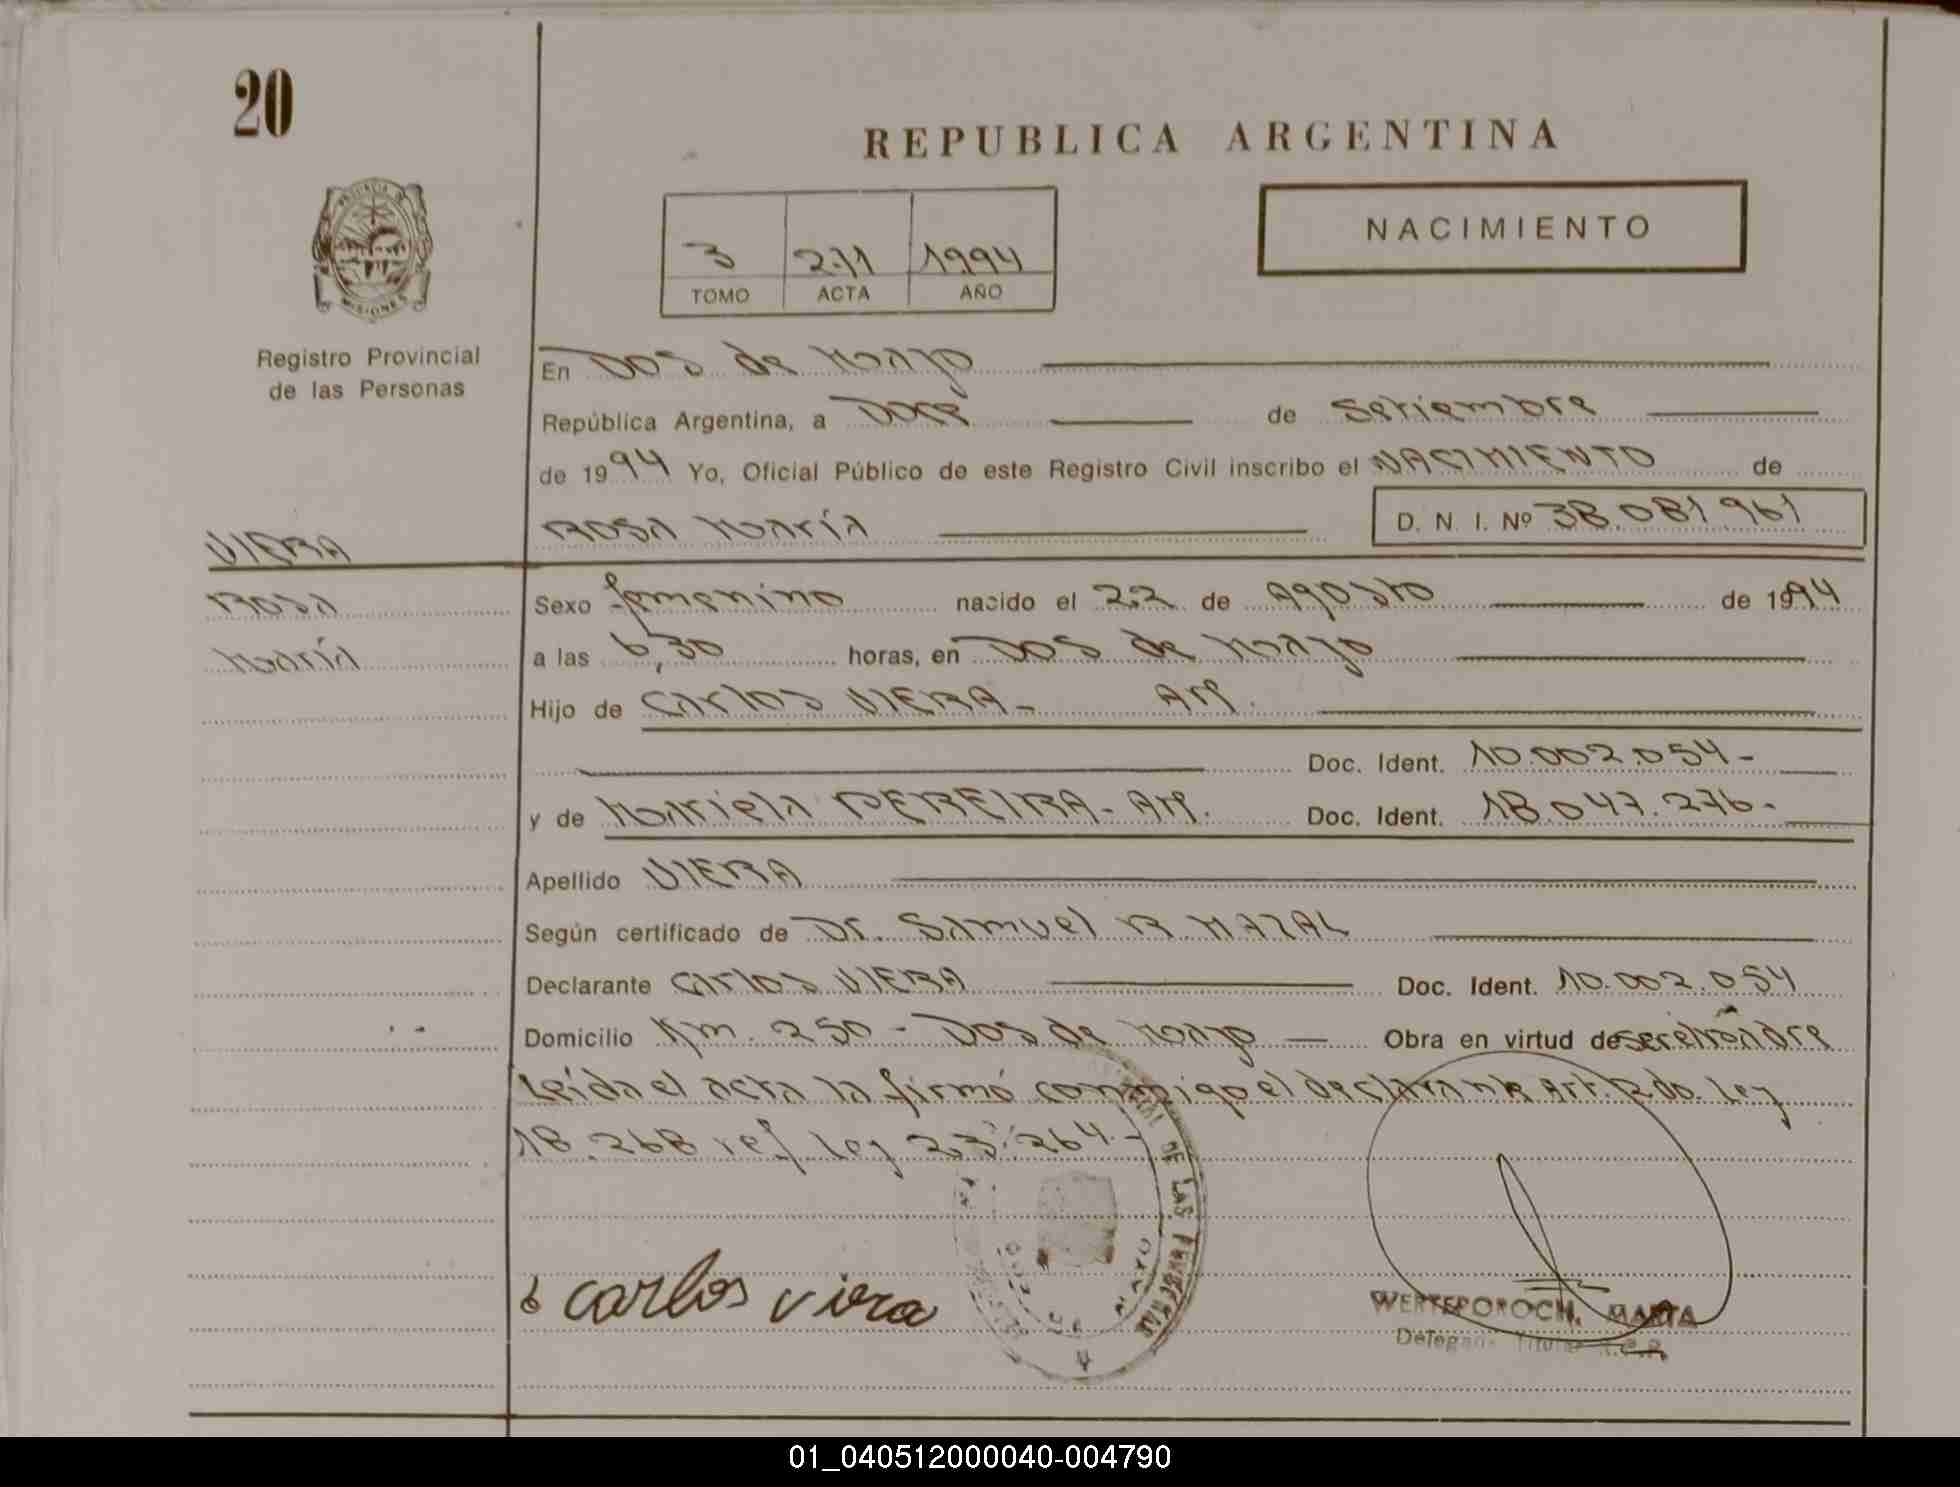 20
REPUBLICA ARGENTINA
NACIMIENTO
3 211 1994
TOMO ACTA AÑO
PROVINCIA DE MISIONES
Registro Provincial
de las Personas
En Dos de Marzo
República Argentina, a Doce de Setiembre
de 1994 Yo, Oficial Público de este Registro Civil inscribo el NACIMIENTO de
Rosa María D. N. I. Nº 38.081.961
VIERA
Rosa
María
Sexo femenino nacido el 22 de Agosto de 1994
a las 6,30 horas, en Dos de Marzo
Hijo de Carlos VIERA- Arg.
Doc. Ident. 10.002.054-
y de Mariela PEREIRA- Arg. Doc. Ident. 18.047.276-
Apellido VIERA
Según certificado de Dr. Samuel R MAZAL
Declarante Carlos VIERA Doc. Ident. 10.002.054
Domicilio Km. 250 - Dos de Marzo Obra en virtud de ser el Padre
Leída el acta la firmó conmigo el declarante Art. 2do. Ley
18.268 ref ley 23.264.-
DE LAS PERSONAS
carlos viera
WERTEPOROCH, MARTA
Titular R.P.P.
01_040512000040-004790